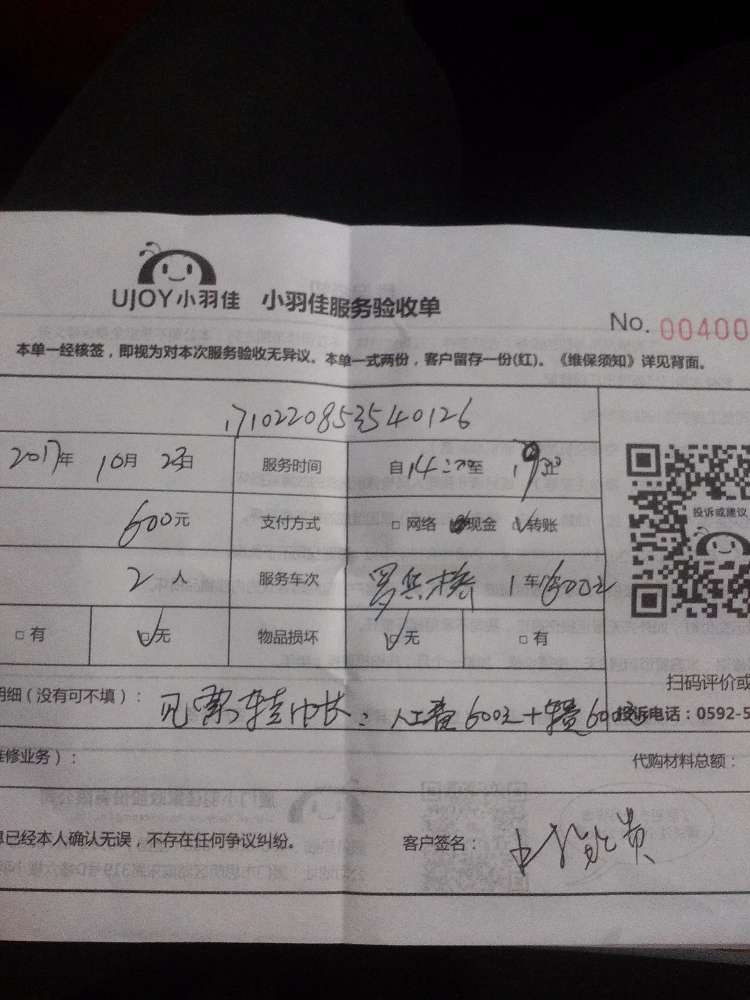 UJOY小羽佳 小羽佳服务验收单
No. 00400
本单一经核签，即视为对本次服务验收无异议。本单一式两份，客户留存一份(红)。《维保须知》详见背面。
1710220853540126
2017年 10月 23日 服务时间 自14:00至19
600元 支付方式 □网络 现金 转账
投诉或建议
2人 服务车次 1车/600元
□有 无 物品损坏 无 □有
扫码评价或
明细（没有可不填）： 人工费600元+车费600元
投诉电话：0592-5
维修业务）： 代购材料总额：
息已经本人确认无误，不存在任何争议纠纷。 客户签名：